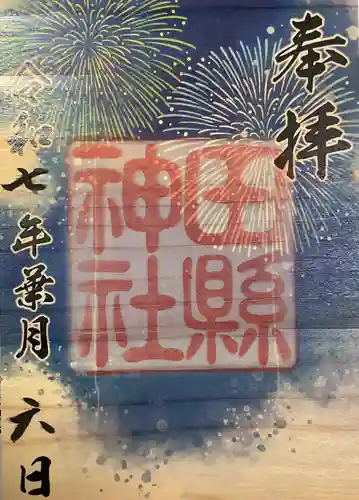 奉拝
田縣
神社
令和七年葉月六日